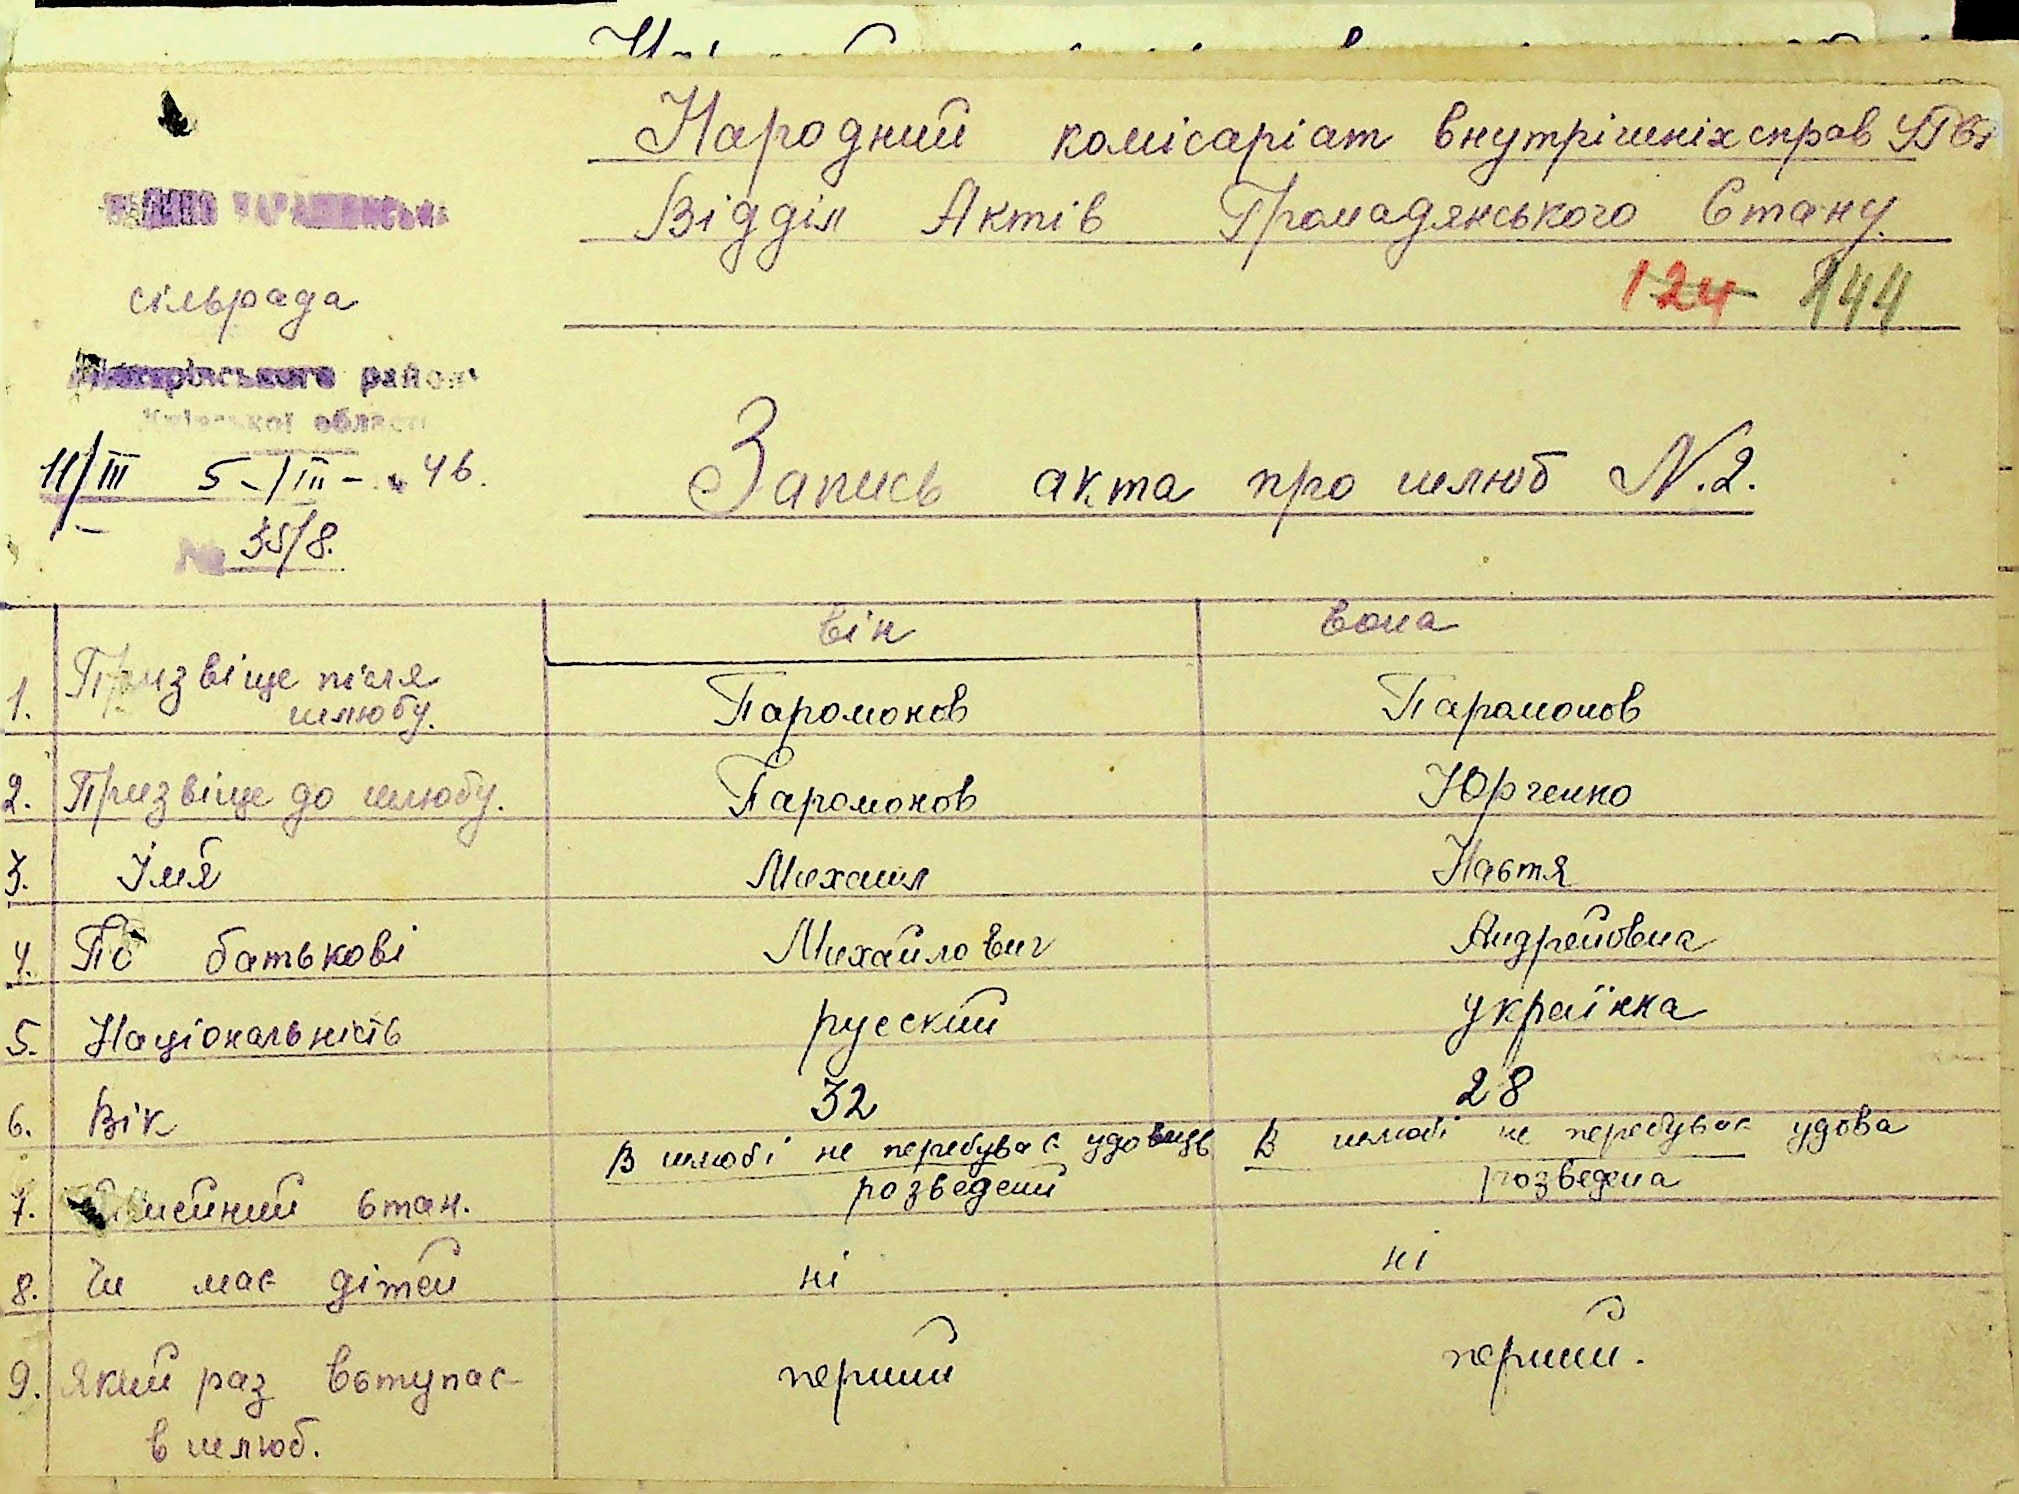 Народний комісаріат внутрішніх справ
Відділ Актів Громадянського Стану
124 144
сільрада
район
області
11/III 5-/III- 46.
№ 35/8.
Запись акта про шлюб N.2.
він вона
1. Призвіще після шлюбу. Паромонов Паромонов
2. Призвіще до шлюбу. Паромонов Юрченко
3. Імя Михаил Настя
4. По батькові Михайлович Андрейовна
5. Національність русский українка
6. Вік 32 28
7. Сімейний стан. В шлюбі не перебуває удовиць розведений В шлюбі не перебуває удова розведена
8. Чи має дітей ні ні
9. Який раз вступає в шлюб. перший перший.